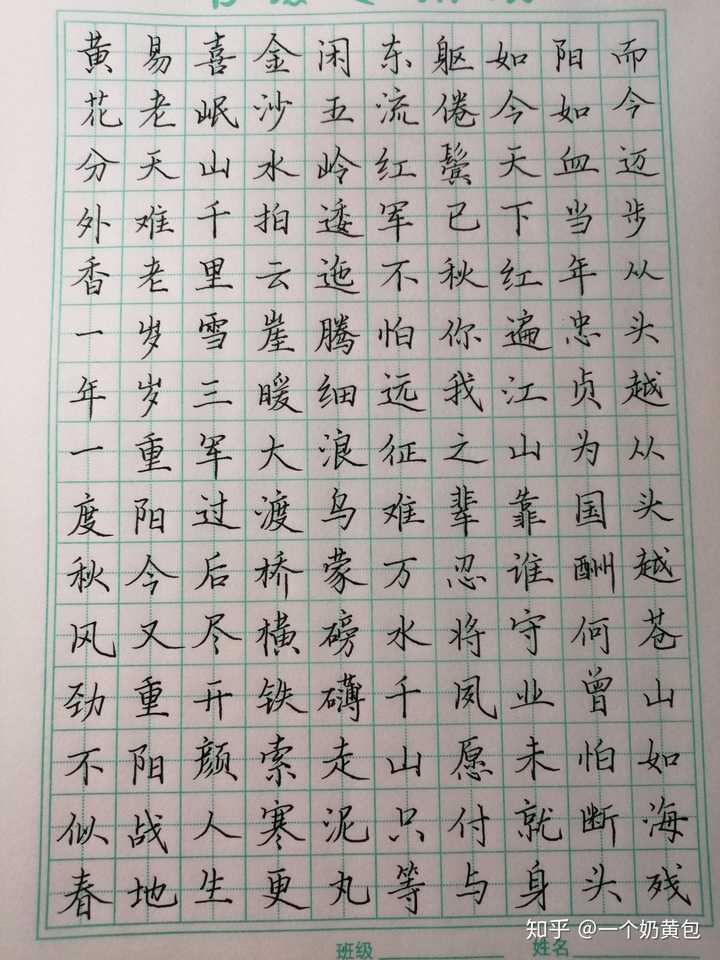 而今迈步从头越从头越苍山如海残
阳如血当年忠贞为国酬何曾怕断头
如今天下红遍江山靠谁守业未就身
躯倦鬓已秋你我之辈忍将夙愿付与
东流红军不怕远征难万水千山只等
闲五岭逶迤腾细浪乌蒙磅礴走泥丸
金沙水拍云崖暖大渡桥横铁索寒更
喜岷山千里雪三军过后尽开颜人生
易老天难老岁岁重阳今又重阳战地
黄花分外香一年一度秋风劲不似春
班级 姓名
知乎 @一个奶黄包